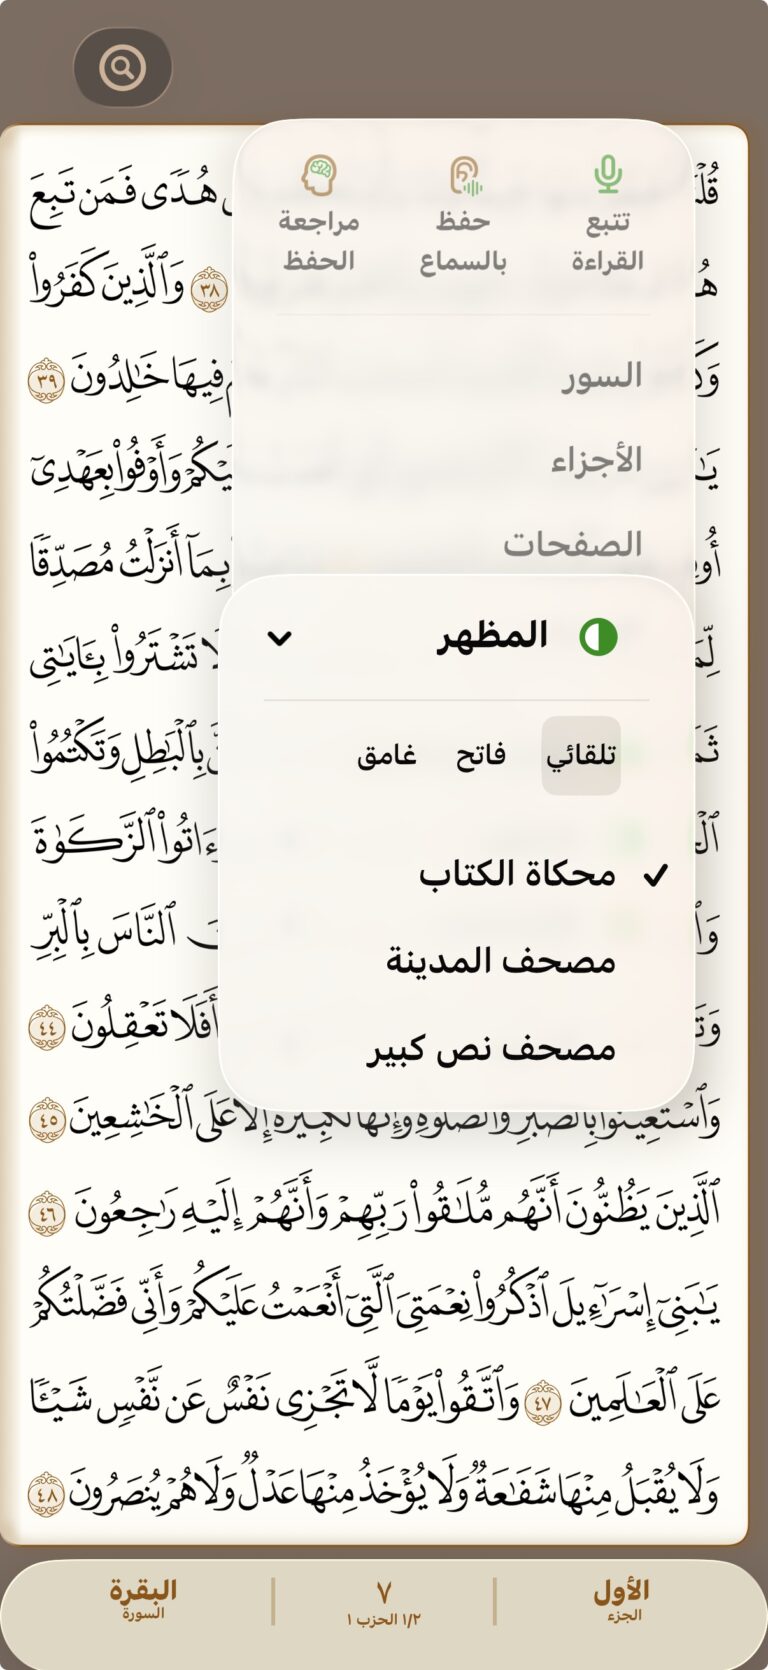 تتبع القراءة
حفظ بالسماع
مراجعة الحفظ
السور
الأجزاء
الصفحات
المظهر
تلقائي فاتح غامق
محكاة الكتاب
مصحف المدينة
مصحف نص كبير
هُدٗى فَمَن تَبِعَ
٣٨ وَٱلَّذِينَ كَفَرُواْ
فِيهَا خَٰلِدُونَ ٣٩
وَأَوۡفُواْ بِعَهۡدِيٓ
بِمَآ أَنزَلۡتُ مُصَدِّقٗا
تَشۡتَرُواْ بِـَٔايَٰتِي
بِٱلۡبَٰطِلِ وَتَكۡتُمُواْ
ٱلزَّكَوٰةَ
ٱلنَّاسَ بِٱلۡبِرِّ
أَفَلَا تَعۡقِلُونَ ٤٤
عَلَى ٱلۡخَٰشِعِينَ ٤٥
ٱلَّذِينَ يَظُنُّونَ أَنَّهُم مُّلَٰقُواْ رَبِّهِمۡ وَأَنَّهُمۡ إِلَيۡهِ رَٰجِعُونَ ٤٦
يَٰبَنِيٓ إِسۡرَٰٓءِيلَ ٱذۡكُرُواْ نِعۡمَتِيَ ٱلَّتِيٓ أَنۡعَمۡتُ عَلَيۡكُمۡ وَأَنِّي فَضَّلۡتُكُمۡ
عَلَى ٱلۡعَٰلَمِينَ ٤٧ وَٱتَّقُواْ يَوۡمٗا لَّا تَجۡزِي نَفۡسٌ عَن نَّفۡسٖ شَيۡـٔٗا
وَلَا يُقۡبَلُ مِنۡهَا شَفَٰعَةٞ وَلَا يُؤۡخَذُ مِنۡهَا عَدۡلٞ وَلَا هُمۡ يُنصَرُونَ ٤٨
الأول
الجزء
٧
١/٢ الحزب ١
البقرة
السورة